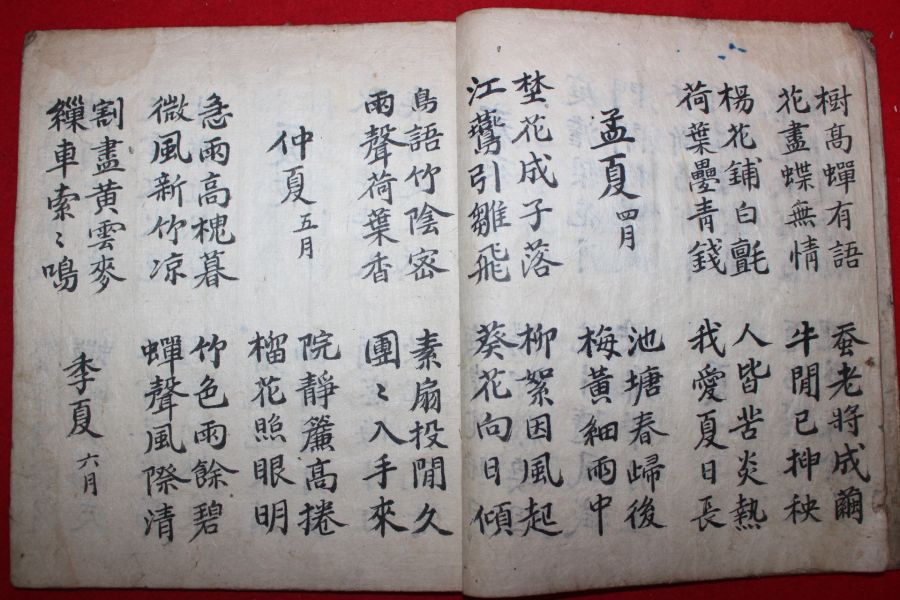 樹高蟬有語
花盡蝶無情
蚕老將成繭
牛閒已揷秧
楊花鋪白氈
荷葉疊青錢
人皆苦炎熱
我愛夏日長
孟夏 四月
池塘春歸後
梅黃細雨中
埜花成子落
江鷰引雛飛
柳絮因風起
葵花向日傾
鳥語竹陰密
雨聲荷葉香
素扇投閒久
團〻入手來
仲夏 五月
院靜簾高捲
榴花照眼明
急雨高槐暮
微風新竹凉
竹色雨餘碧
蟬聲風際清
割盡黃雲麥
繅車索〻鳴
季夏 六月